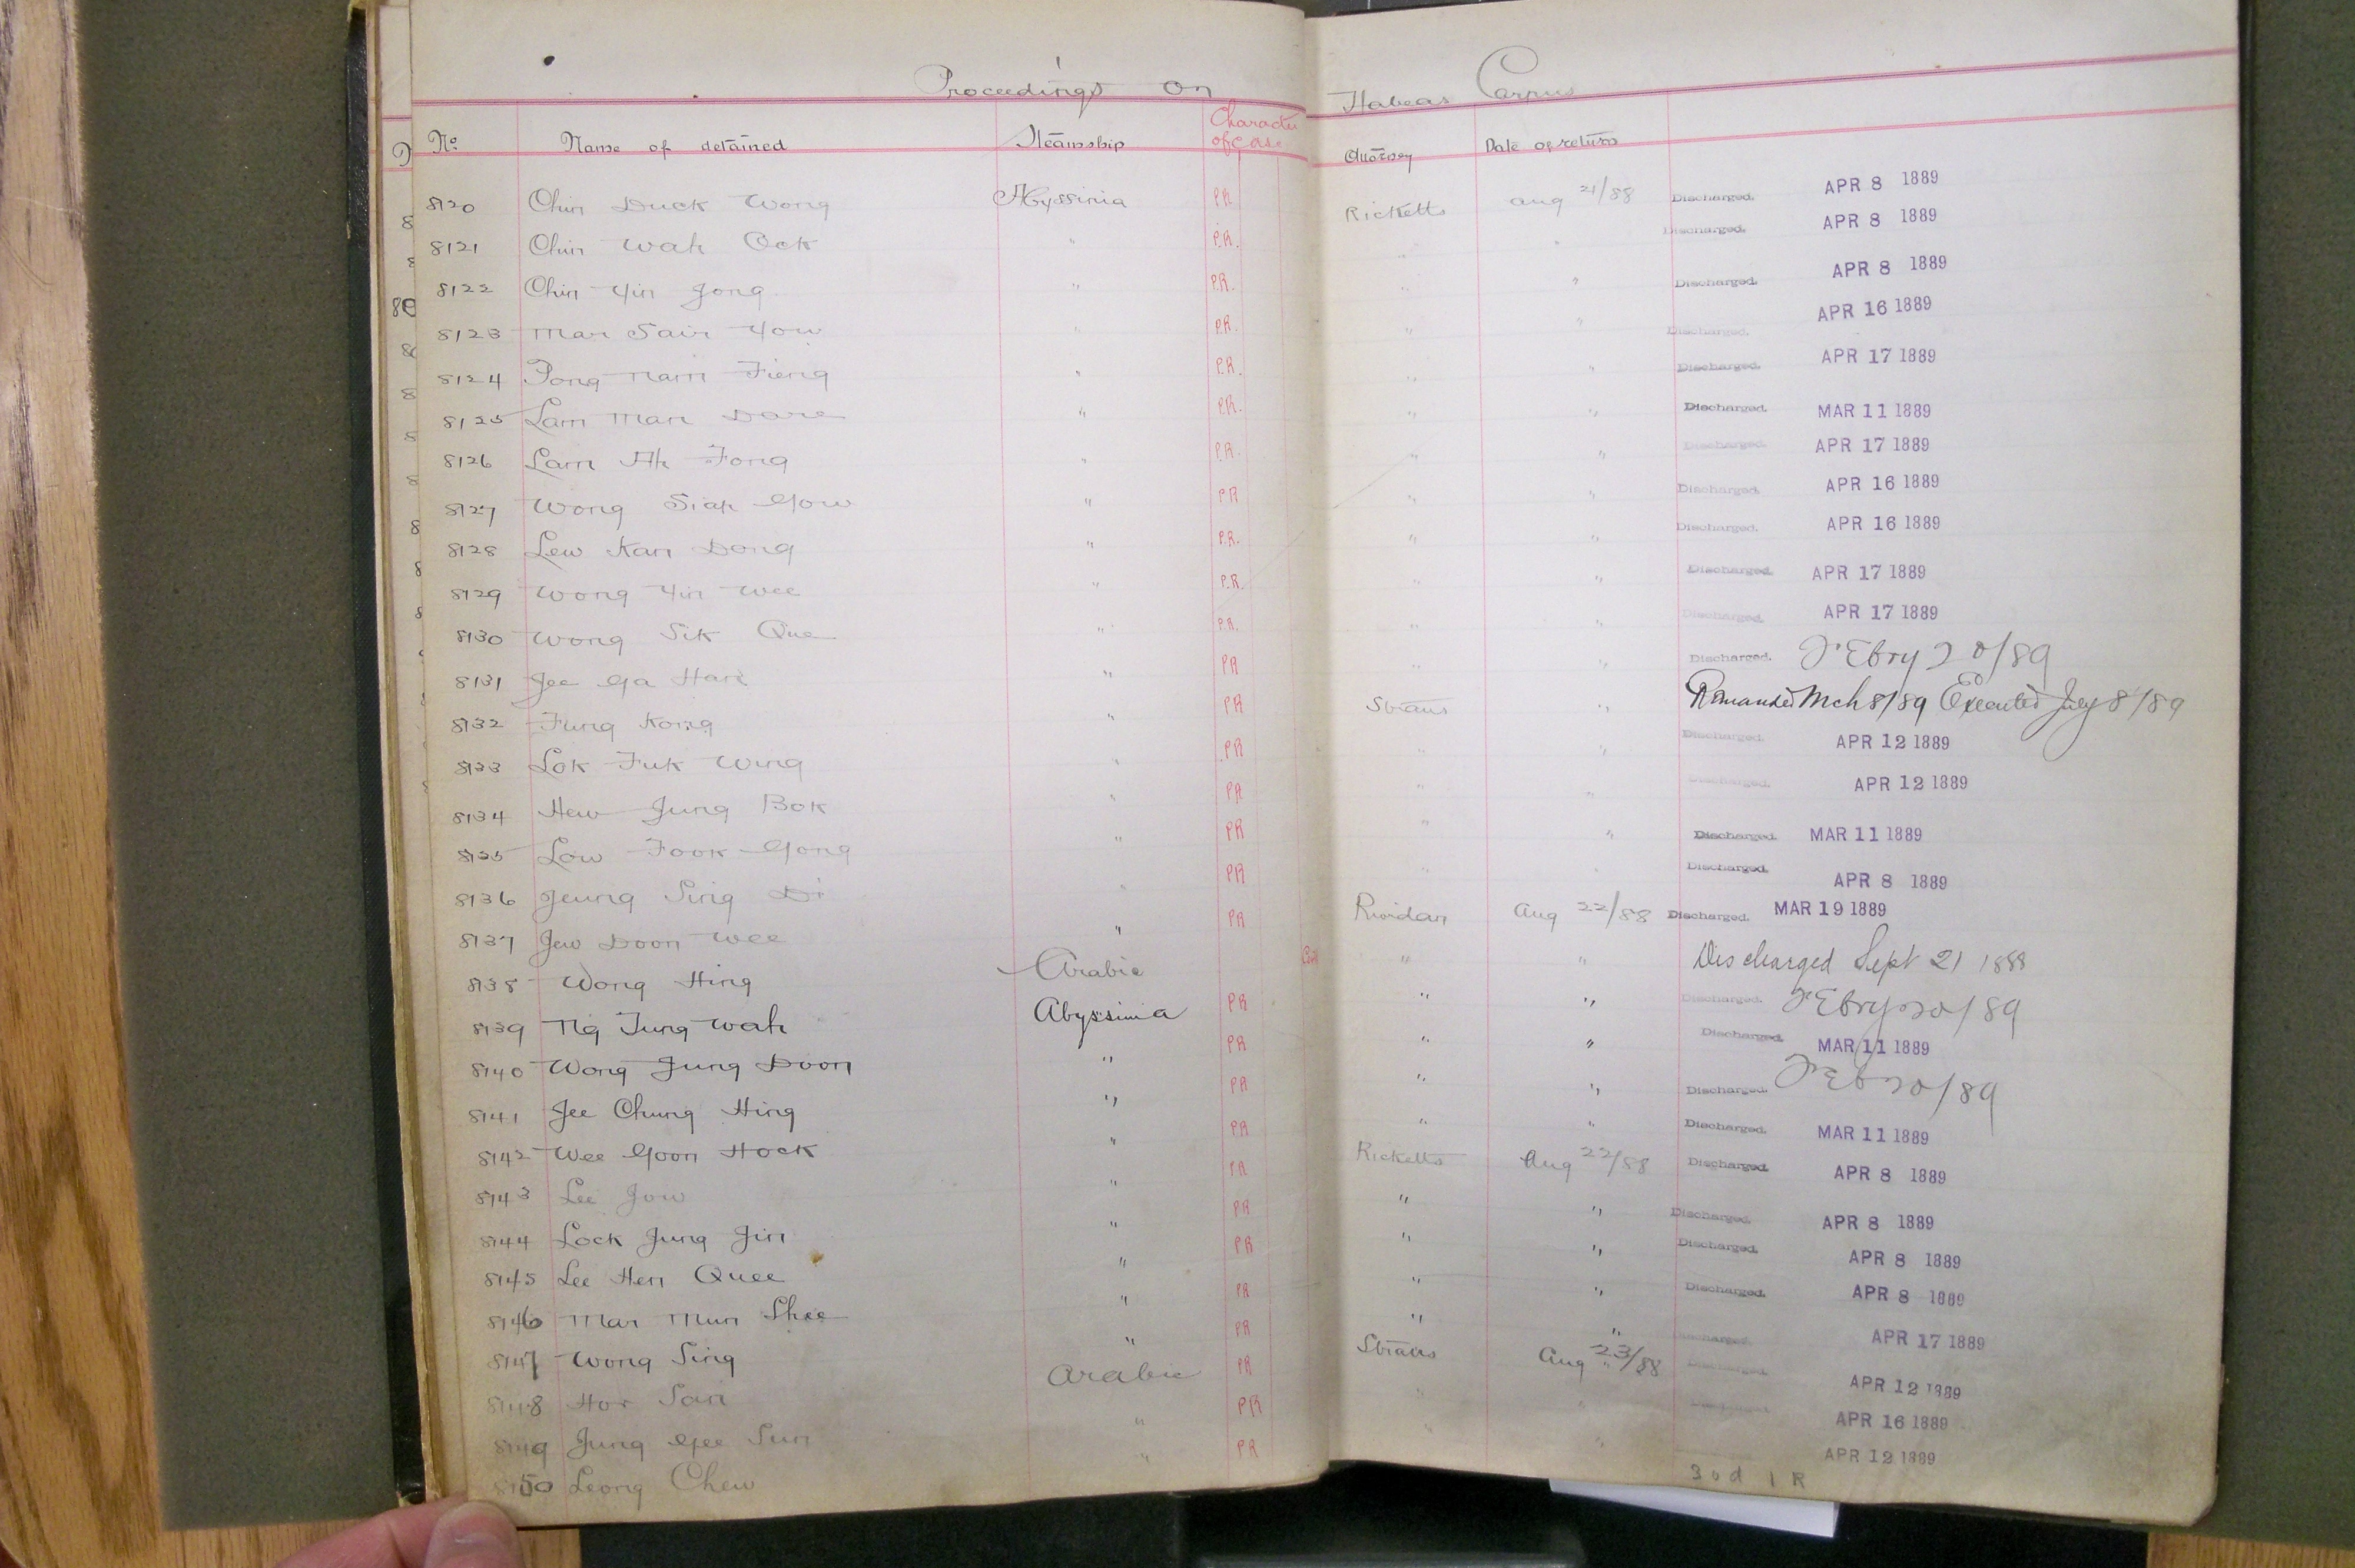 Proceedings on Habeas Corpus
No. Name of detained Steamship Character of Case Attorney Date of return
8120 Chin Duck Wong Abyssinia P.R. Ricketts Aug 21/88 Discharged. APR 8 1889
8121 Chin Wah Ock " P.R. " " Discharged. APR 8 1889
8122 Chin Yin Jong " P.R. " " Discharged. APR 8 1889
8123 Mar Sair You " P.R. " " Discharged. APR 16 1889
8124 Pong Nam Fieng " P.R. " " Discharged. APR 17 1889
8125 Lam Man Dare " P.R. " " Discharged. MAR 11 1889
8126 Lam Ah Fong " P.R. " " Discharged. APR 17 1889
8127 Wong Siak Gow " P.R " " Discharged. APR 16 1889
8128 Lew Kan Dong " P.R. " " Discharged. APR 16 1889
8129 Wong Yin Wee " P.R. " " Discharged. APR 17 1889
8130 Wong Sik Que " P.R. " " Discharged. APR 17 1889
8131 Jee Ga Han " PR " " Discharged. Febry 20/89
8132 Fung Kong " PR Straus " Remanded Mch 8/89 Executed July 8/89
8133 Lok Fuk Wing " PR " " Discharged. APR 12 1889
8134 Haw Jung Bok " PR " " Discharged. APR 12 1889
8135 Low Fook Gong " PR " " Discharged. MAR 11 1889
8136 Jeung Sing Di " PR " " Discharged. APR 8 1889
8137 Jew Doon Wee " PR Riordan Aug 22/88 Discharged. MAR 19 1889
8138 Wong Hing Arabic " " Discharged Sept 21 1888
8139 Ng Jung Wah Abyssinia PR " " Discharged. Febry 20/89
8140 Wong Jung Doon " PR " " Discharged. MAR 11 1889
8141 Jee Chung Hing " PR " " Discharged. Feb 20/89
8142 Wee Goon Hock " PR " " Discharged. MAR 11 1889
8143 Lee Jow " PR Ricketts Aug 22/88 Discharged. APR 8 1889
8144 Lock Jung Jin " PR " " Discharged. APR 8 1889
8145 Lee Hen Quee " PR " " Discharged. APR 8 1889
8146 Mar Mun Shee " PR " " Discharged. APR 8 1889
8147 Wong Sing " PR " " Discharged. APR 17 1889
8148 Hor San Arabic PR Straus Aug 23/88 Discharged. APR 12 1889
8149 Jung Gee Sun " PR " " APR 16 1889
8150 Leong Chew " PR " " APR 12 1889
30 d 1 R